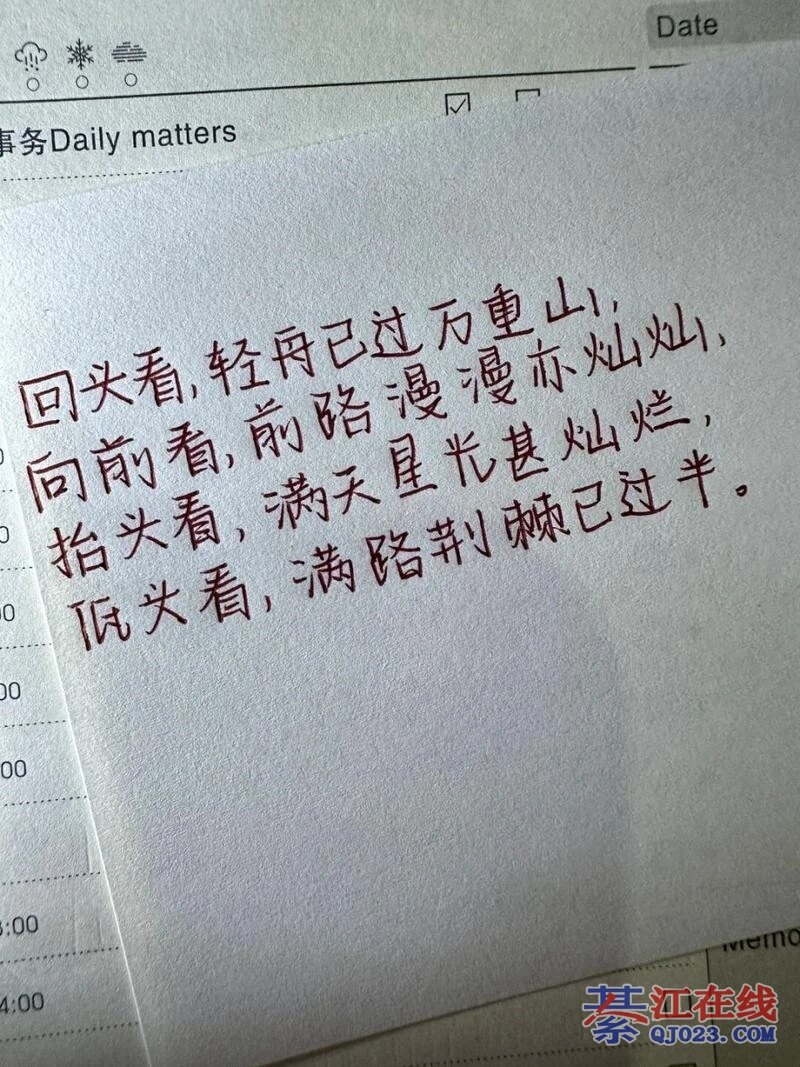 Date
事务Daily matters
回头看,轻舟已过万重山,
向前看,前路漫漫亦灿灿,
抬头看,满天星光甚灿烂,
低头看,满路荆棘已过半。
:00
4:00
Memo
綦江在线
QJ023.COM